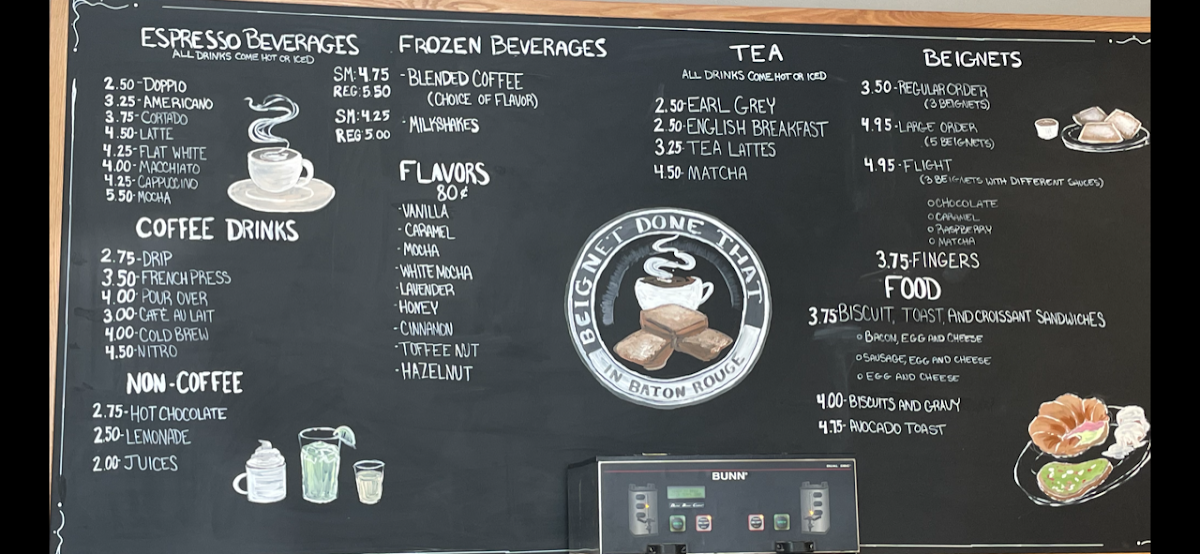 ESPRESSO BEVERAGES
ALL DRINKS COME HOT OR ICED
2.50-DOPPIO
3.25-AMERICANO
3.75-CORTADO
4.50-LATTE
4.25-FLAT WHITE
4.00-MACCHIATO
4.25-CAPPUCCINO
5.50-MOCHA
COFFEE DRINKS
2.75-DRIP
3.50-FRENCH PRESS
4.00-POUR OVER
3.00-CAFÉ AU LAIT
4.00-COLD BREW
4.50-NITRO
NON-COFFEE
2.75-HOT CHOCOLATE
2.50-LEMONADE
2.00-JUICES
FROZEN BEVERAGES
SM: 4.75 -BLENDED COFFEE
REG: 5.50 (CHOICE OF FLAVOR)
SM: 4.25 -MILKSHAKES
REG: 5.00
FLAVORS
80¢
-VANILLA
-CARAMEL
-MOCHA
-WHITE MOCHA
-LAVENDER
-HONEY
-CINNAMON
-TOFFEE NUT
-HAZELNUT
TEA
ALL DRINKS COME HOT OR ICED
2.50-EARL GREY
2.50-ENGLISH BREAKFAST
3.25-TEA LATTES
4.50-MATCHA
BEIGNET DONE THAT
IN BATON ROUGE
BEIGNETS
3.50-REGULAR ORDER
(3 BEIGNETS)
4.95-LARGE ORDER
(5 BEIGNETS)
4.95-FLIGHT
(3 BEIGNETS WITH DIFFERENT SAUCES)
○ CHOCOLATE
○ CARAMEL
○ RASPBERRY
○ MATCHA
3.75-FINGERS
FOOD
3.75 BISCUIT, TOAST, AND CROISSANT SANDWICHES
○ BACON, EGG AND CHEESE
○ SAUSAGE, EGG AND CHEESE
○ EGG AND CHEESE
4.00-BISCUITS AND GRAVY
4.75-AVOCADO TOAST
BUNN